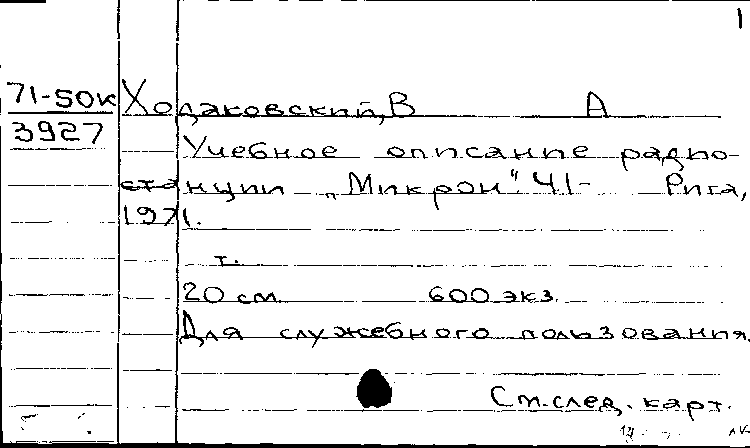 1
71-50к Ходаковский, В А
3927
Учебное описание радио-
станции „Микрон“. Ч1- Рига,
1971.
т.
20 см. 600 экз.
Для служебного пользования.
См. след. карт.